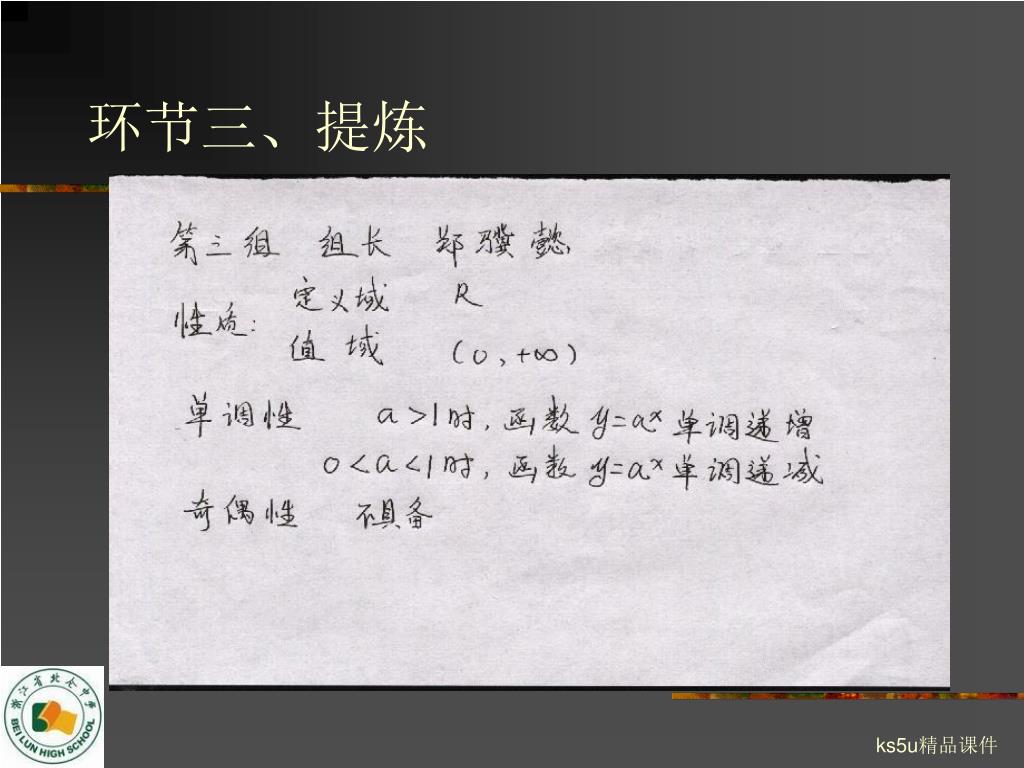 环节三、提炼
第三组 组长 郑骥懿
性质: 定义域 R
值域 (0,+∞)
单调性 a>1时,函数y=aˣ单调递增
0<a<1时,函数y=aˣ单调递减
奇偶性 不具备
浙江省北仑中学
BEI LUN HIGH SCHOOL
ks5u精品课件